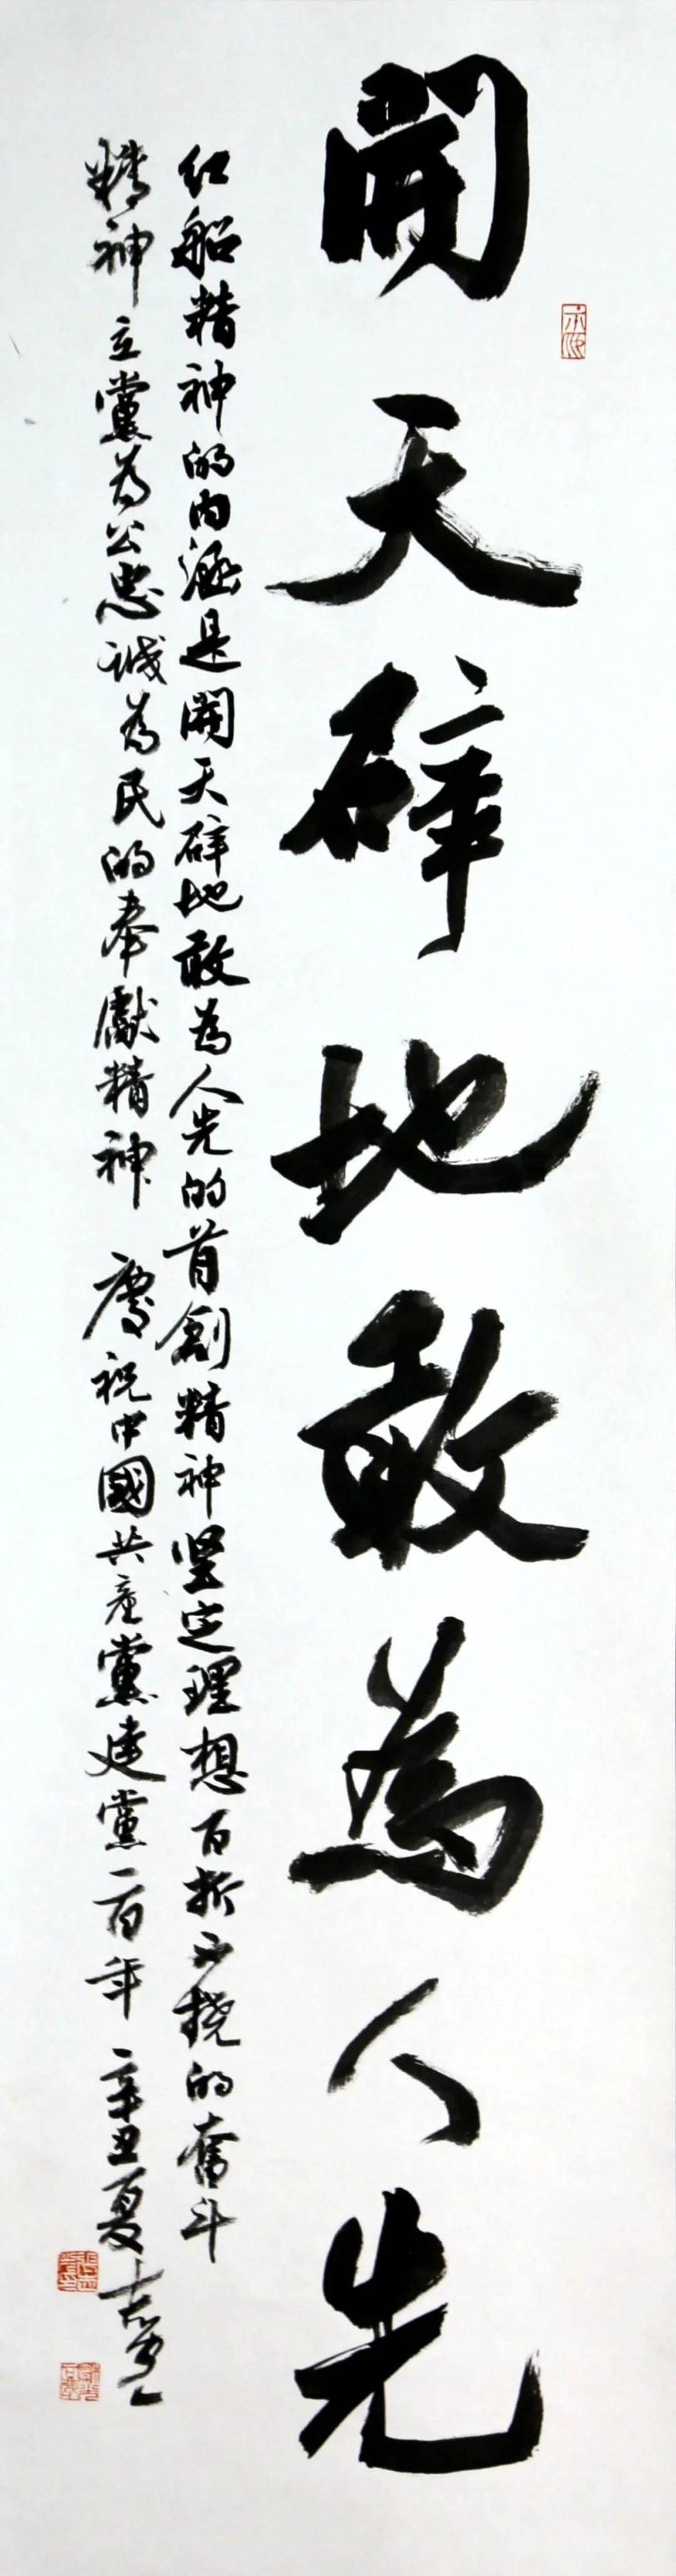 開天辟地敢為人先
红船精神的内涵是開天辟地敢為人先的首創精神坚定理想百折不挠的奮斗
精神立黨為公忠誠為民的奉獻精神 慶祝中國共產黨建黨一百年 辛丑夏